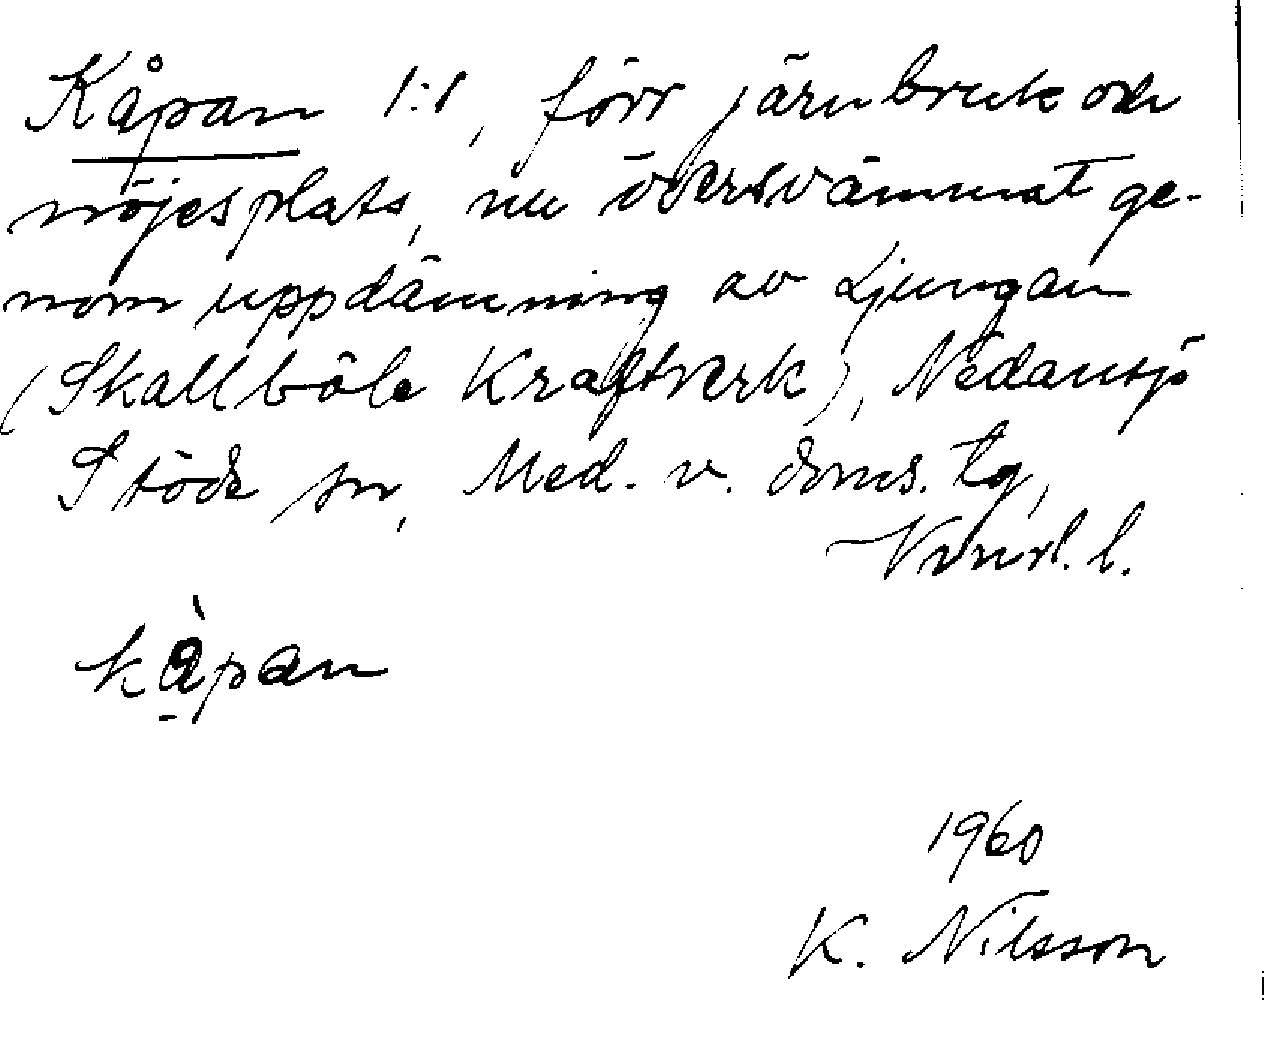 Kåpan 1:1, förr järnbruk och
nöjesplats, nu översvämmat ge-
nom uppdämning av Ljungan
(Skallböle Kraftverk), Nedansjö
Stöde sn, Med. v. doms. tg,
Vnrl. l.
kå̀pan
1960
K. Nilsson